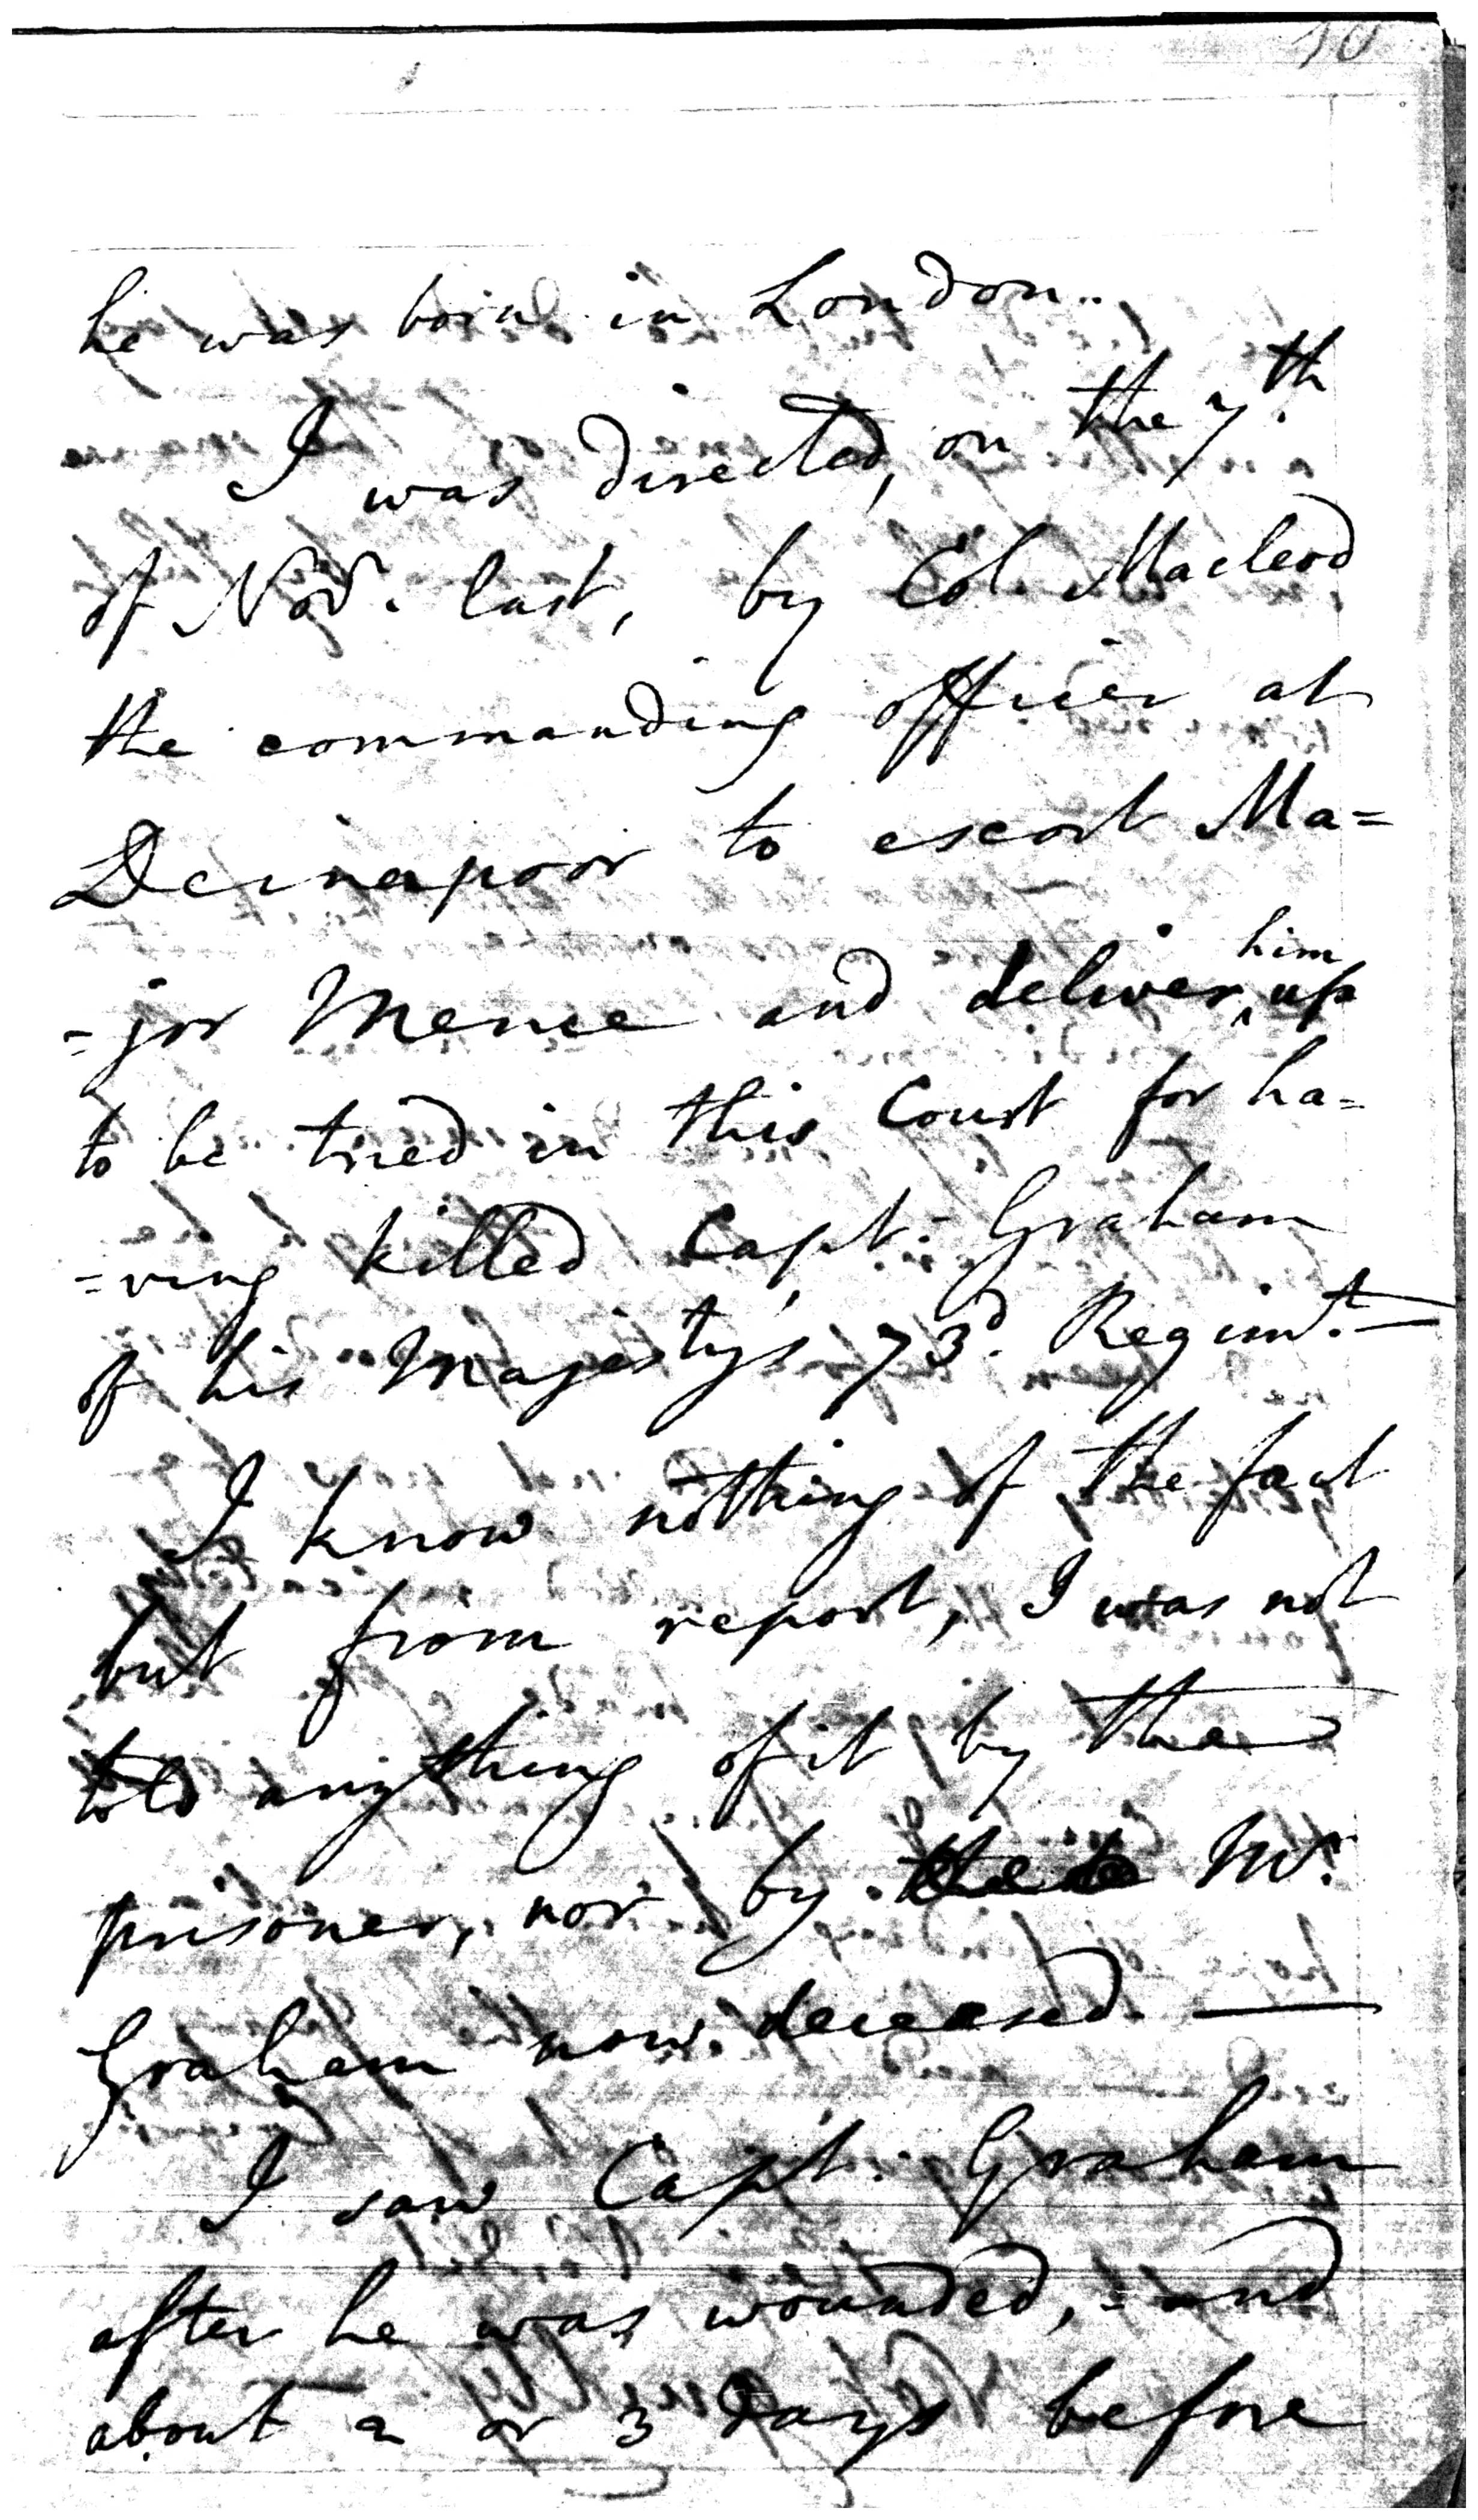 10
he was born in London..
I was directed, on the 7.th
of Nov.r last, by Col. Macleod
the commanding officer at
Deinapoor to escort Ma=
=jor Mence and deliver ^him up
to be tried in this Court for ha=
=ving killed Capt. Graham
of his Majesty's 73.d Regim.t —
I know nothing of the fact
but from report, I was not
told anything of it by the
prisoner, nor by Mr.
Graham now deceased. —
I saw Capt. Graham
after he was wounded, and
about 2 or 3 days before